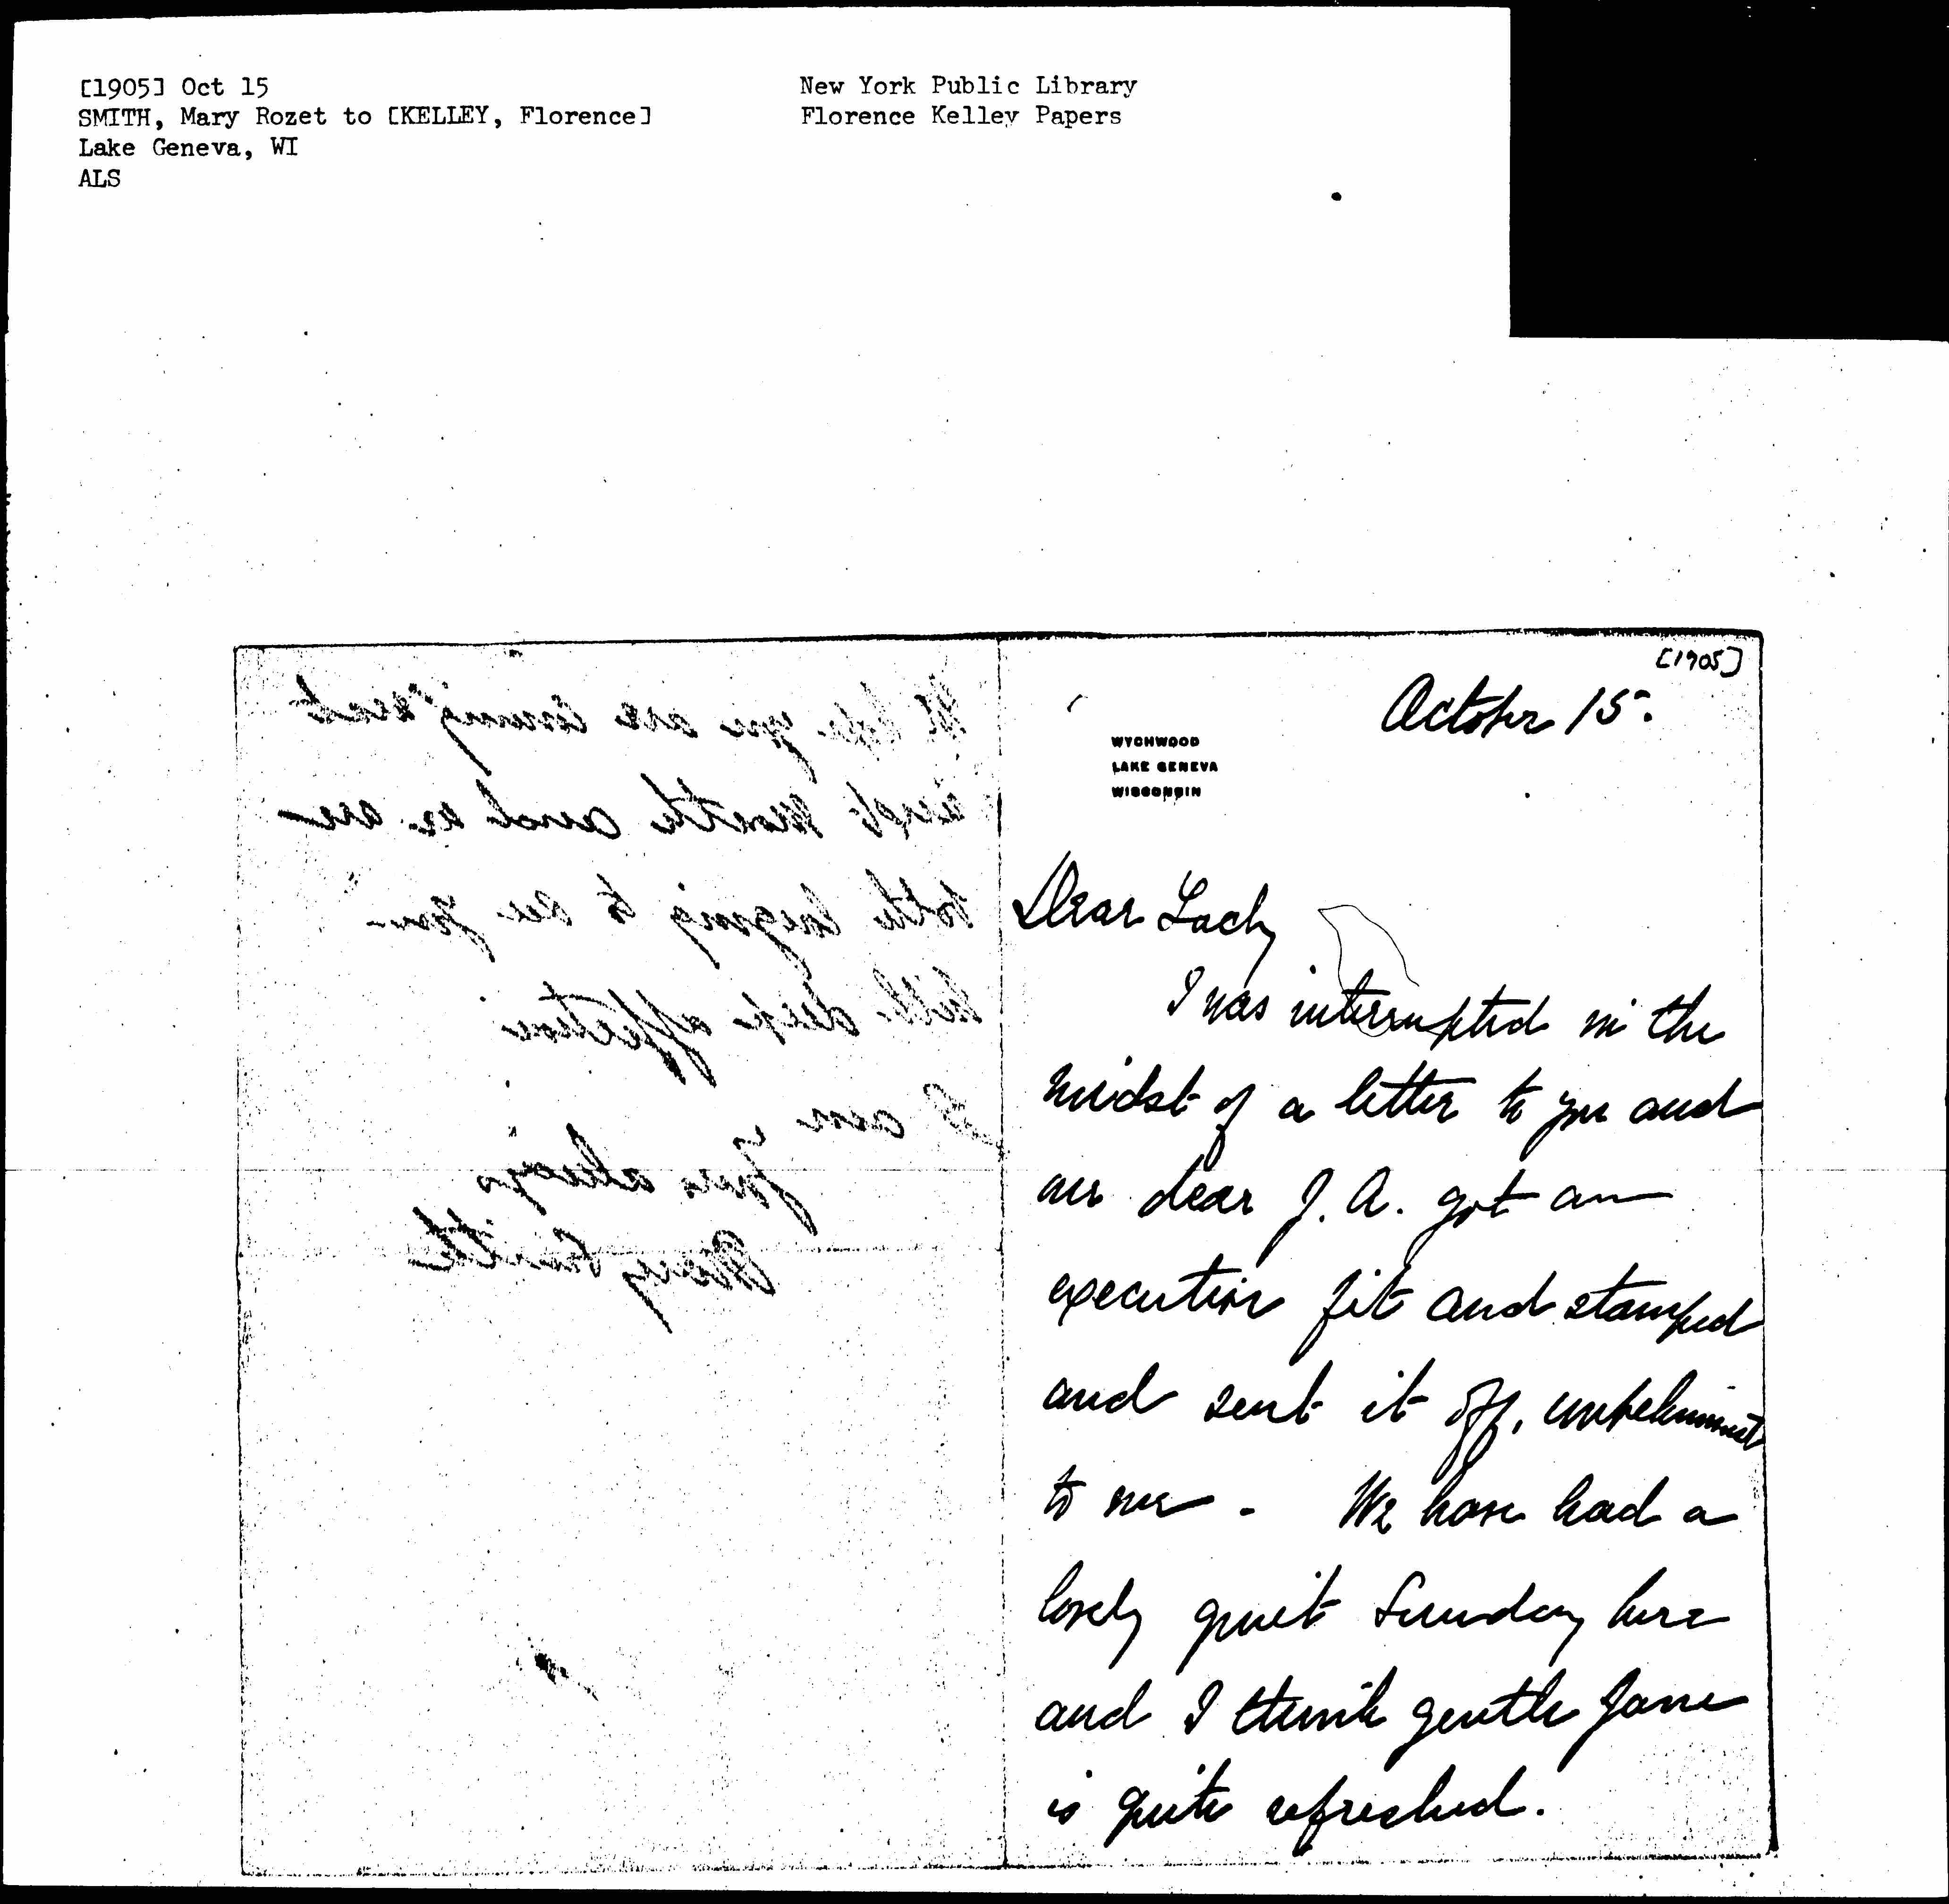 [1905] Oct 15
SMITH, Mary Rozet to [KELLEY, Florence]
Lake Geneva, WI
ALS
New York Public Library
Florence Kelley Papers
[1905]
October 15.
WYCHWOOD
LAKE GENEVA
WISCONSIN
Dear Lady
I was interrupted in the
midst of a letter to you and
our dear J. A. got an
executive fit and stamped
and sent it off, unbeknownst
to me - We have had a
lovely quiet Sunday here
and I think gentle Jane
is quite refreshed.
We hope you are coming west
next month and we are
both longing to see you -
With deep affection
I am yours always
Mary Smith